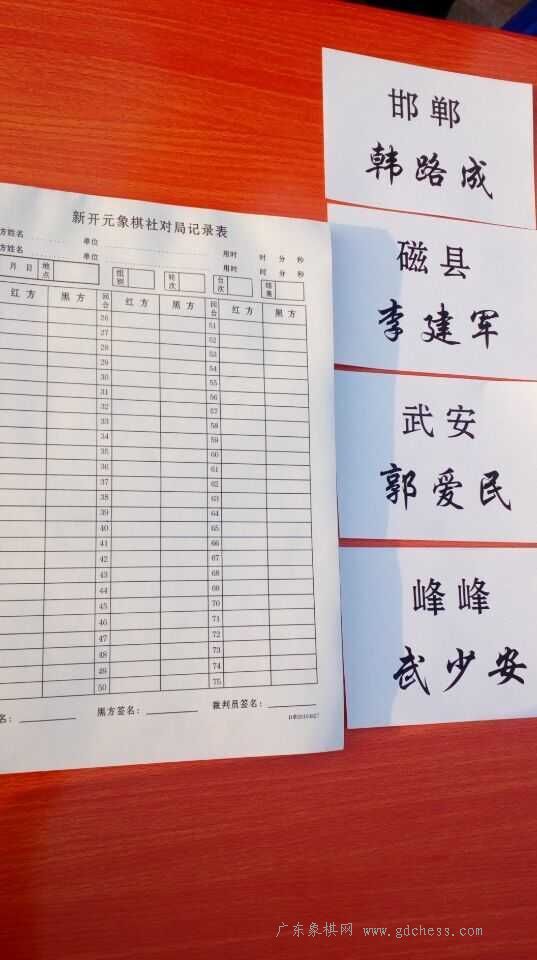 新开元象棋社对局记录表
方姓名 单位 用时 时 分 秒
方姓名 单位 用时 时 分 秒
月 日 地点 组别 轮次 台次 结果
红方 黑方 回合 红方 黑方 回合 红方 黑方
26 51
27 52
28 53
29 54
30 55
31 56
32 57
33 58
34 59
35 60
36 61
37 62
38 63
39 64
40 65
41 66
42 67
43 68
44 69
45 70
46 71
47 72
48 73
49 74
50 75
名： 黑方签名： 裁判员签名：
邯郸
韩路成
磁县
李建军
武安
郭爱民
峰峰
武少安
广东象棋网 www.gdchess.com